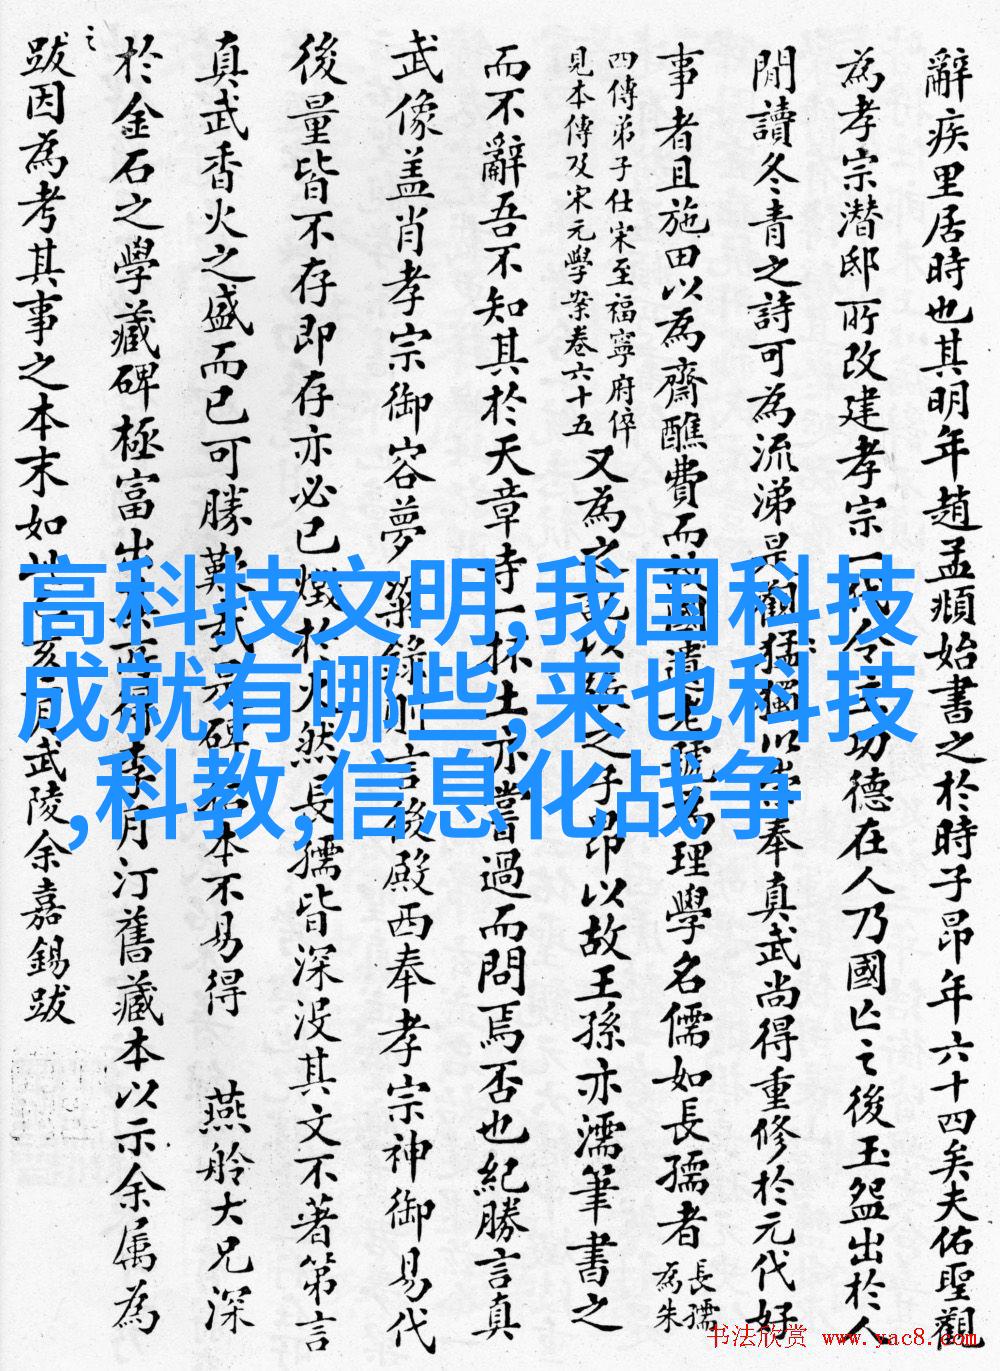 辭疾里居時也其明年趙孟頫始書之於時子昂年六十四矣夫佑聖觀
為孝宗潛邸所改建孝宗一代令主功德在人乃國亡之後玉盌出於人
間讀冬青之詩可為流涕是觀猶獨以奉真武尚得重修於元代好
事者且施田以為齋醮費而故國遺老號為理學名儒如長孺者
長孺為朱
四傳弟子仕宋至福寧府倅
見本傳及宋元學案卷六十五
又為之記以之子昂以故王孫亦濡筆書之
而不辭吾不知其於天章寺一抔土亦嘗過而問焉否也紀勝言真
武像盖肖孝宗御容夢粱錄則言後殿西奉孝宗神御易代
後量皆不存即存亦必已燬於火然長孺皆深沒其文不著第言
真武香火之盛而已可勝歎哉元碑本不易得 燕舲大兄深
於金石之學藏碑極富出李月汀舊藏本以示余属為
之
跋因為考其事之本末如亥月武陵余嘉錫跋
高科技文明,我国科技
成就有哪些,来也科技
,科教,信息化战争
书法欣赏 www.yac8.com